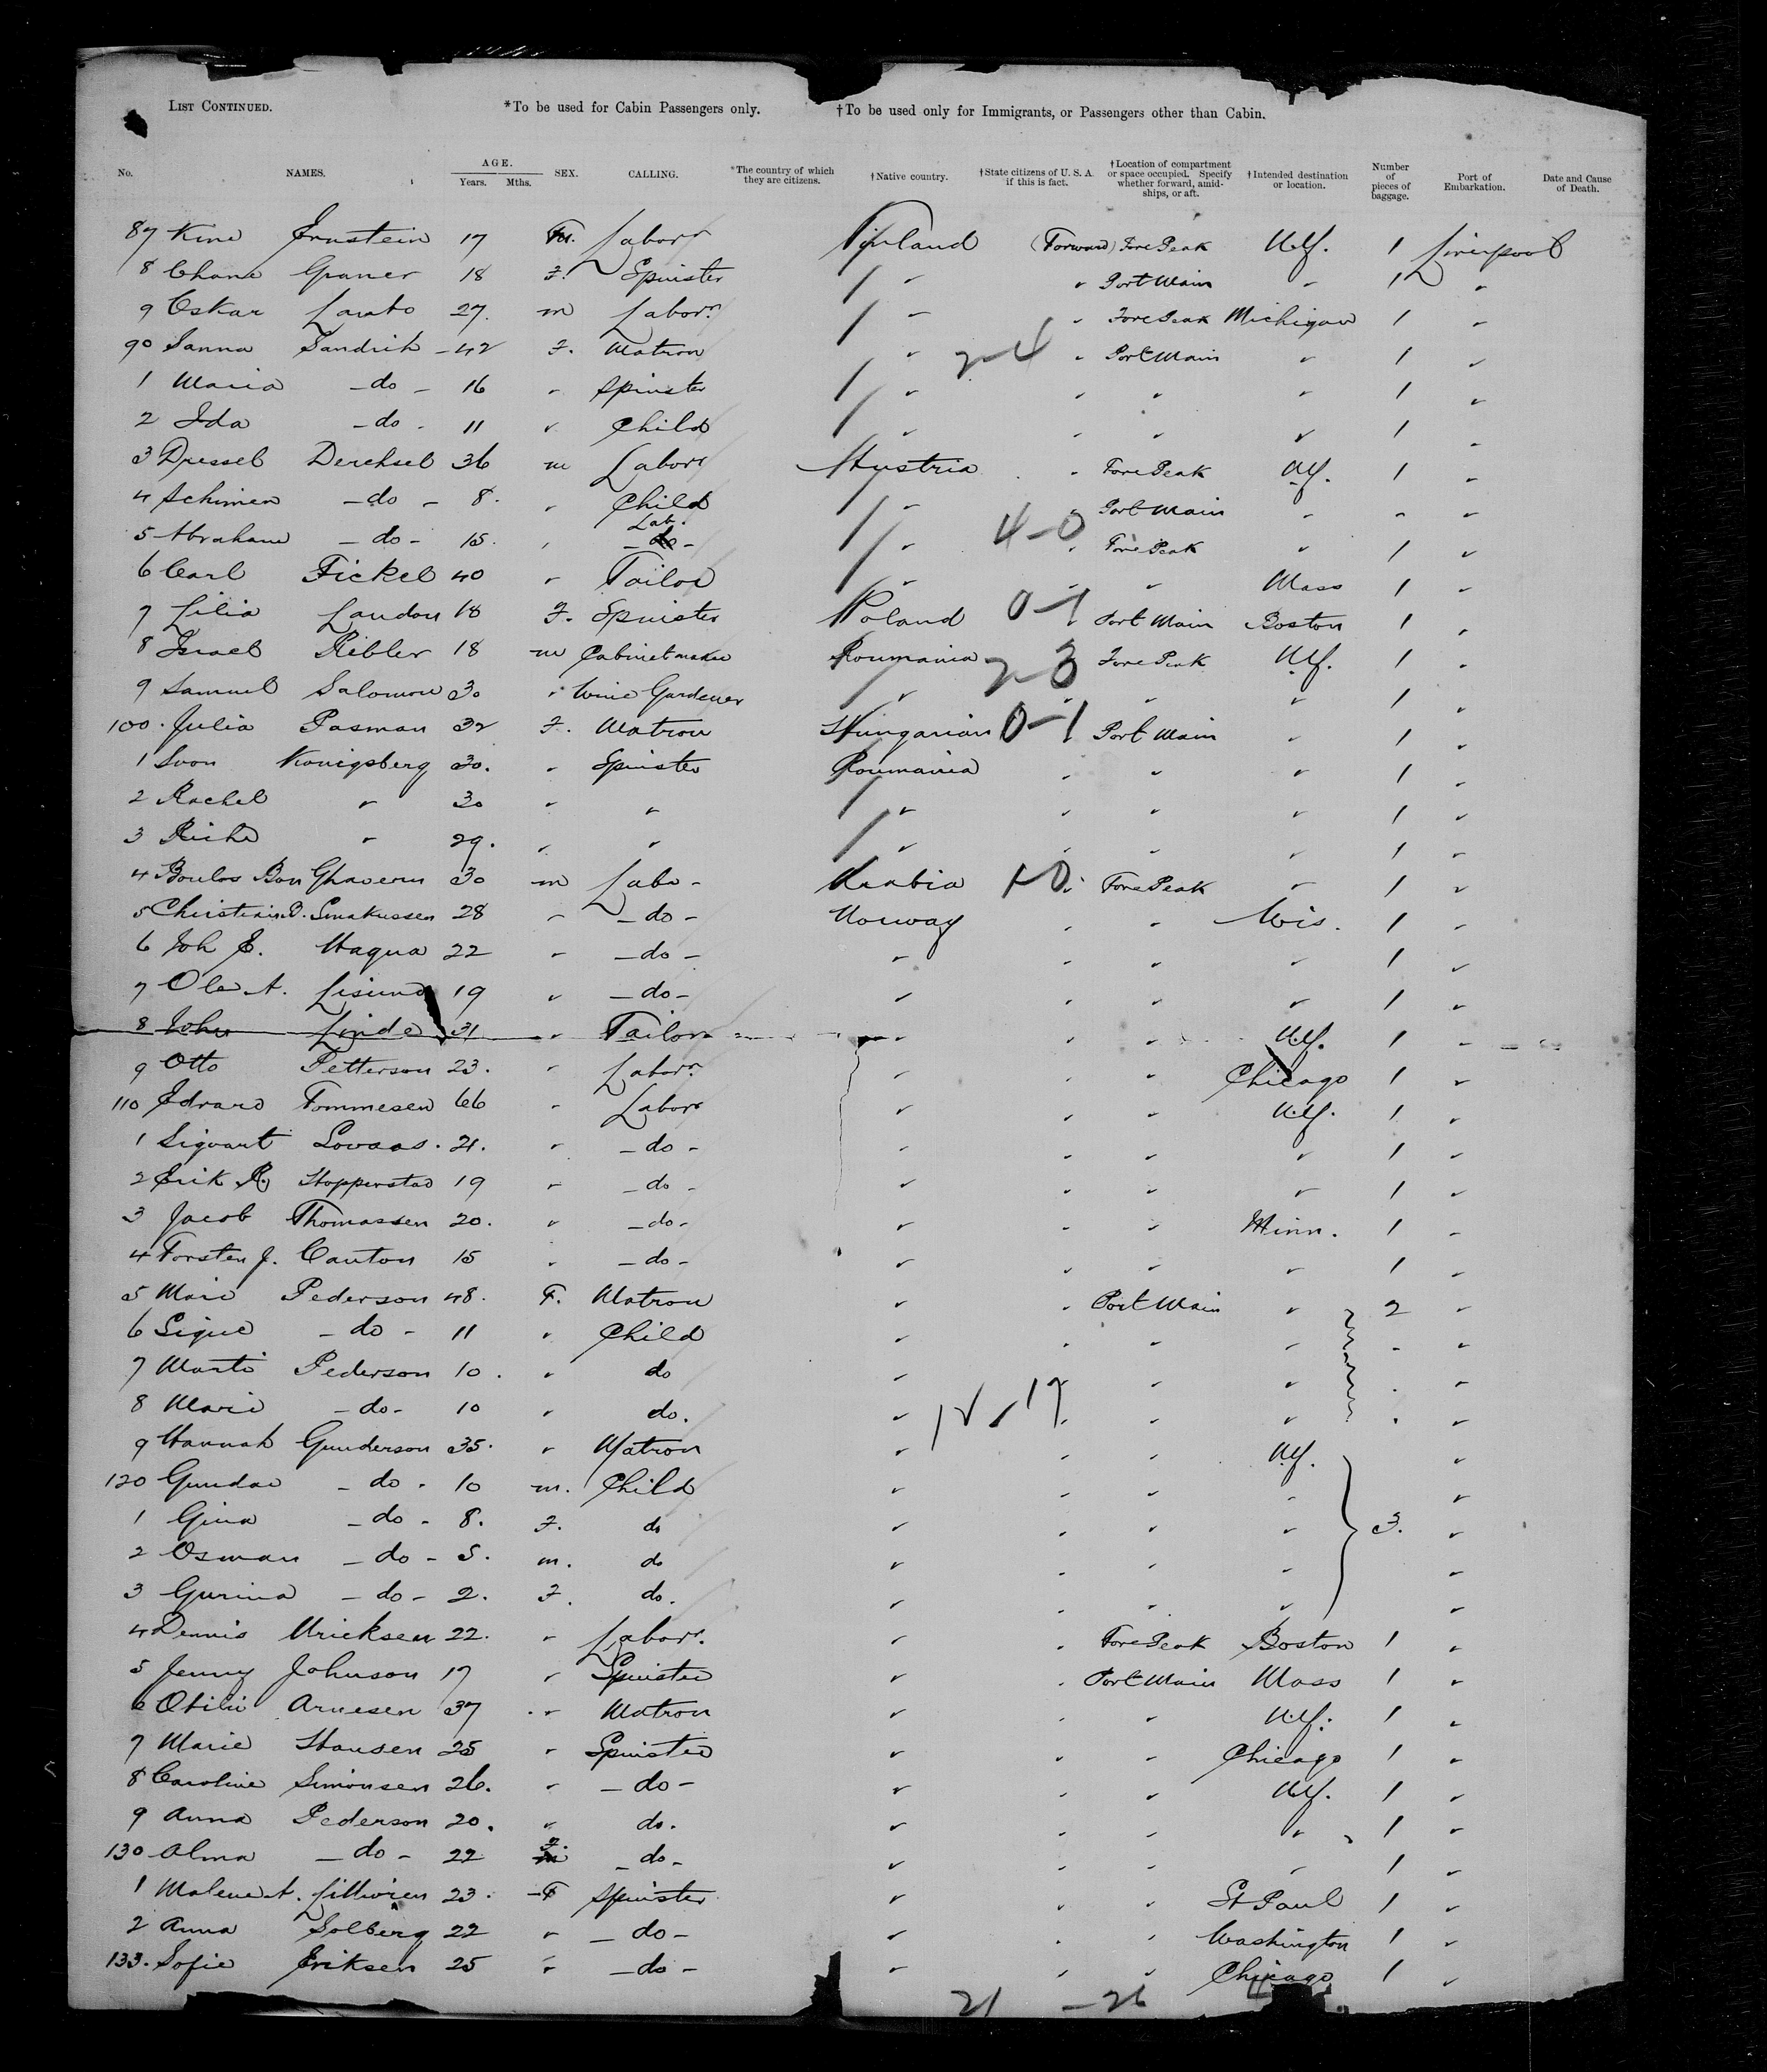 LIST CONTINUED. *To be used for Cabin Passengers only. †To be used only for Immigrants, or Passengers other than Cabin.
No. NAMES. AGE. Years. Mths. SEX. CALLING. *The country of which they are citizens. †Native country. †State citizens of U. S. A. if this is fact. †Location of compartment or space occupied. Specify whether forward, amidships, or aft. †Intended destination or location. Number of pieces of baggage. Port of Embarkation. Date and Cause of Death.
87 17 Labor Finland (Forward) Fore Peak N.Y. 1 Liverpool
8 Graner 18 F. Spinster " " Port Main " 1 "
9 Oskar 27. m Labor. " " Fore Peak Michigan 1 "
90 Sanna 42 F. Matron " 2-4 " Port Main " 1 "
1 Maria -do- 16 " Spinster " " " " 1 "
2 Ida -do- 11 " Child " " " " 1 "
3 36 m Labor Austria " Fore Peak N.Y. 1 "
4 Schimen -do- 8. " Child " " Port Main " " "
5 Abraham -do- 15. " Lab. " 4-0 " Fore Peak " 1 "
6 Carl Fickel 40 " Tailor " " " Mass 1 "
7 Lilia Landon 18 F. Spinster Poland 0-1 Port Main Boston 1 "
8 Israel Ribler 18 m Cabinetmaker Roumania 2-3 Fore Peak N.Y. 1 "
9 Samuel Salomon 30 " Wine Gardener " " " " 1 "
100. Julia Pasman 32 F. Matron Hungarian 0-1 Port Main " 1 "
1 Konigsberg 30. " Spinster Roumania " " " 1 "
2 Rachel " 30 " " " " " " 1 "
3 " 29. " " " " " " 1 "
4 Boulos Bon 30 m Labo- Arabia 1-0 " Fore Peak " 1 "
5 28 " -do- Norway " " Wis. 1 "
6 Joh E. 22 " -do- " " " " 1 "
7 Ole A. 19 " -do- " " " " 1 "
8 John Linde 31 " Tailor " " " N.Y. 1 "
9 Otto Petterson 23. " Labor. " " " Chicago 1 "
110 Edvard Tommesen 66 " Labor " " " N.Y. 1 "
1 Sigvart Lovaas. 21. " -do- " " " " 1 "
2 Erik R. Hopperstad 19 " -do- " " " " 1 "
3 Jacob Thomassen 20. " -do- " " " Minn. 1 "
4 Torsten J. Canton 15 " -do- " " " " 1 "
5 Mari Pederson 48. F. Matron " " Port Main " 2 "
6 Signe -do- 11 " Child " " " " " "
7 Marti Pederson 10. " do " " " " " "
8 Mari -do- 10 " do. " 12 / 17 " " " " "
9 Hannah Gunderson 35. " Matron " " " N.Y. "
120 -do- 10 m. Child " " " " "
1 Gina -do- 8. F. do " " " " 3. "
2 Osman -do- 5. m. do " " " " "
3 Gurina -do- 2. F. do. " " " " "
4 Dennis 22. " Labor. " " Fore Peak Boston 1 "
5 Jenny Johnson 17 " Spinster " " Port Main Mass 1 "
6 Arnesen 37 " Matron " " " N.Y. 1 "
7 Marie Hansen 25 " Spinster " " " Chicago 1 "
8 Caroline Simonsen 26. " -do- " " " N.Y. 1 "
9 Anna Pederson 20. " do. " " " " 1 "
130 Alma -do- 22 F. -do- " " " " 1 "
1 Malene A. 23. F Spinster " " " St Paul 1 "
2 Anna Solberg 22 " -do- " " " Washington 1 "
133. Sofie Eriksen 25 " -do- " " " Chicago 1 "
21 - 26